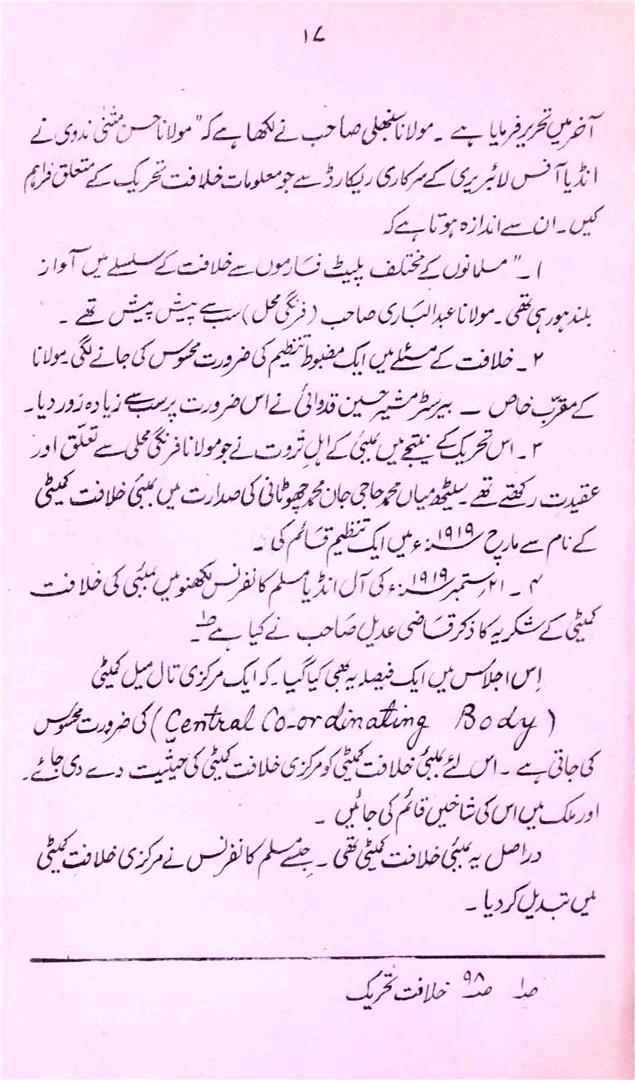 ۱۷
آخر میں تحریر فرمایا ہے ۔ مولانا سنبھلی صاحب نے لکھا ہے کہ ” مولانا حسن مثنیٰ ندوی نے
انڈیا آفس لائبریری کے سرکاری ریکارڈ سے جو معلومات خلافت تحریک کے متعلق فراہم
کیں ۔ ان سے اندازہ ہوتا ہے کہ
۱ ۔ ” مسلمانوں کے مختلف پلیٹ فارموں سے خلافت کے سلسلے میں آواز
بلند ہو رہی تھی ۔ مولانا عبدالباری صاحب ( فرنگی محل ) سب سے پیش پیش تھے ۔
۲ ۔ خلافت کے مسئلے میں ایک مضبوط تنظیم کی ضرورت محسوس کی جانے لگی ۔ مولانا
کے مقربِ خاص ــ بیرسٹر مشیر حسین قدوائی نے اس ضرورت پر سب سے زیادہ زور دیا ۔
۳ ۔ اس تحریک کے نتیجے میں بمبئی کے اہلِ ثروت نے جو مولانا فرنگی محلی سے تعلق اور
عقیدت رکھتے تھے ۔ سیٹھ میاں محمد حاجی جان محمد چھوٹانی کی صدارت میں بمبئی خلافت کمیٹی
کے نام سے مارچ ۱۹۱۹ء میں ایک تنظیم قائم کی ۔
۴ ۔ ۲۱ ستمبر ۱۹۱۹ء کی آل انڈیا مسلم کانفرنس لکھنو میں بمبئی کی خلافت
کمیٹی کے شکریہ کا ذکر قاضی عدیل صاحب نے کیا ہے ؎۱
اِس اجلاس میں ایک فیصلہ یہ بھی کیا گیا ۔ کہ ایک مرکزی تال میل کمیٹی
( Central Co-ordinating Body ) کی ضرورت محسوس
کی جاتی ہے ۔ اس لئے بمبئی خلافت کمیٹی کو مرکزی خلافت کمیٹی کی حیثیت دے دی جائے ۔
اور ملک میں اس کی شاخیں قائم کی جائیں ۔
دراصل یہ بمبئی خلافت کمیٹی تھی ۔ جسے مسلم کانفرنس نے مرکزی خلافت کمیٹی
میں تبدیل کر دیا ۔
؎۱ صـ ۹۸ خلافت تحریک